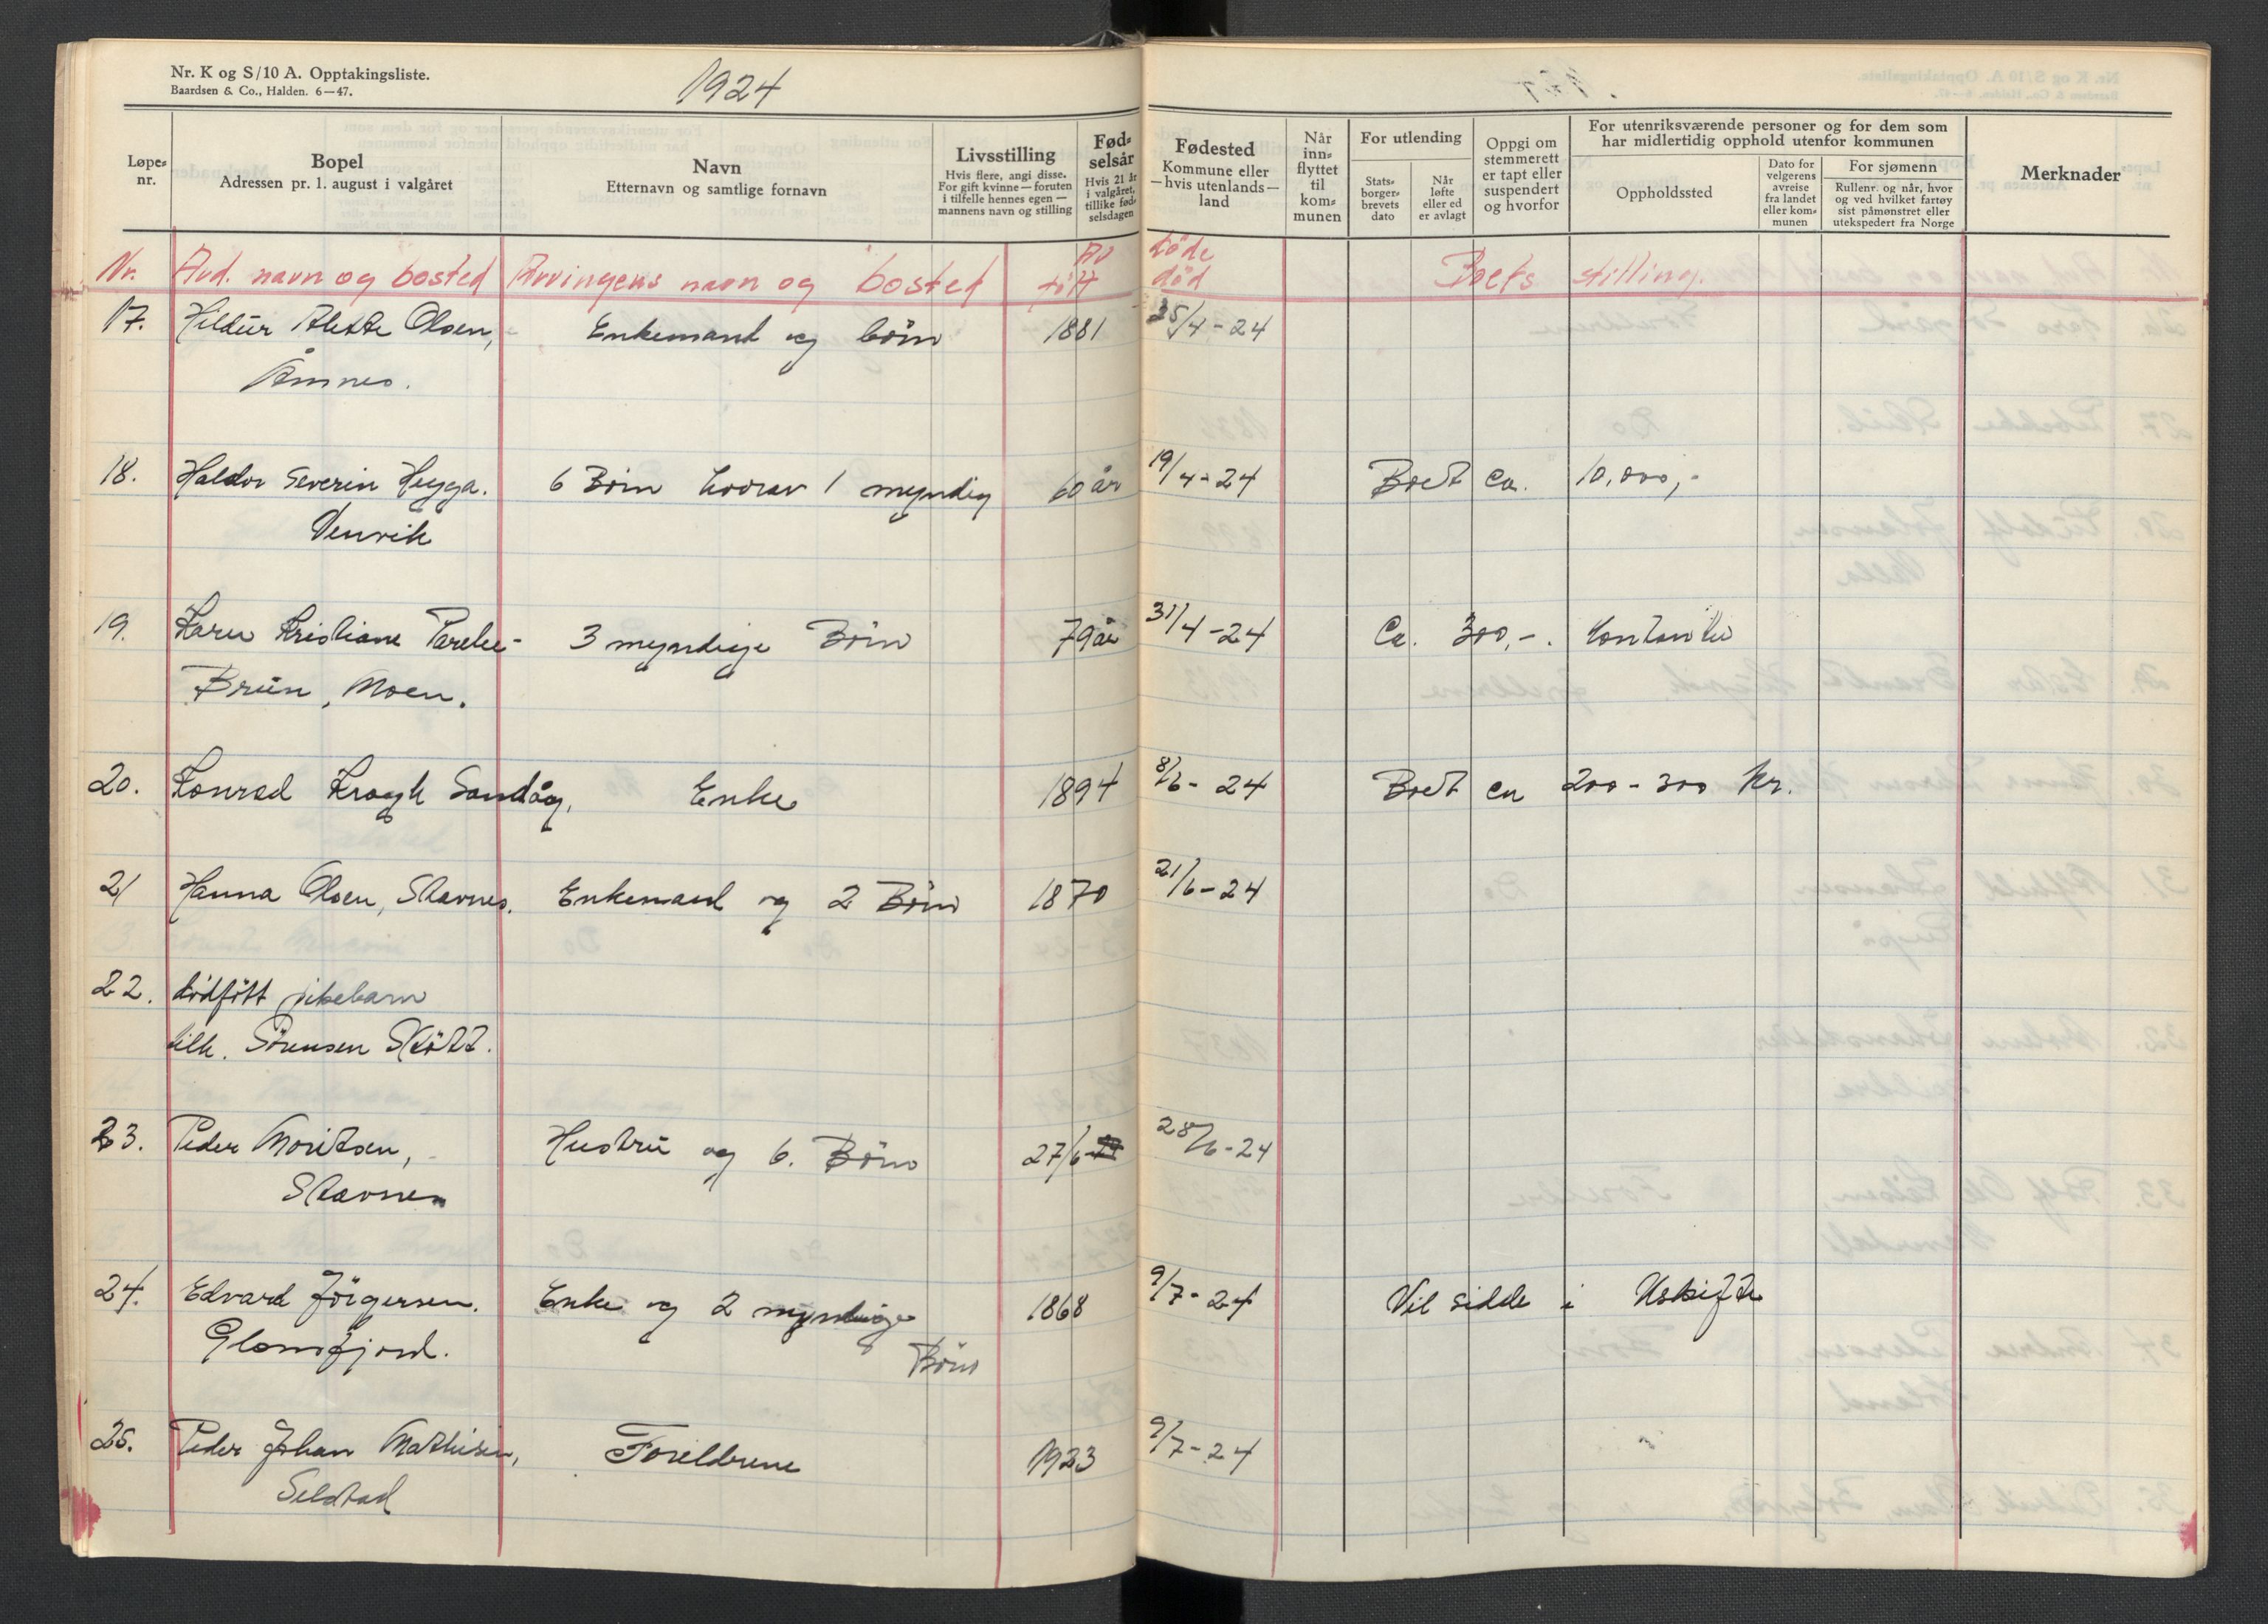 Nr. K og S/10 A. Opptakingsliste.
Baardsen & Co., Halden. 6—47.
1924
Løpe-nr.
Bopel
Adressen pr. 1. august i valgåret
Navn
Etternavn og samtlige fornavn
Livsstilling
Hvis flere, angi disse.
For gift kvinne — foruten
i tilfelle hennes egen —
mannens navn og stilling
Fød-
selsår
Hvis 21 år
i valgåret,
tillike fød-
selsdagen
Fødested
Kommune eller
—hvis utenlands—
land
Når
inn-
flyttet
til
kom-
munen
For utlending
Stats-
borger-
brevets
dato
Når
løfte
eller ed
er avlagt
Oppgi om
stemmerett
er tapt eller
suspendert
og hvorfor
For utenriksværende personer og for dem som
har midlertidig opphold utenfor kommunen
Oppholdssted
Dato for
velgerens
avreise
fra landet
eller kom-
munen
For sjømenn
Rullenr. og når, hvor
og ved hvilket fartøy
sist påmønstret eller
utekspedert fra Norge
Merknader
Nr. Avd. navn og bosted Arvingens navn og bosted født døde død Boets stilling.
17. Hildur Olsen, Enkemand og börn 1881 25/4-24
Åmnes.
18. Haldor Severin Hygga. 6 Börn hvorav 1 myndig 60 år 19/4-24 Boet ca. 10,000,-
Venvik
19. Karen Kristiane 3 myndige Börn 79 år 31/4-24 Ca. 300,-. kontanter
Brun, Moen.
20. Konrad Krogh Sandåg, Enke 1894 8/6-24 Boet ca 200-300 kr.
21 Hanna Olsen, Stavnes. Enkemand og 2 Börn 1870 21/6-24
22. dödfött pikebarn
tilh. Sörensen Stött.
23. Peder Moritsen, Hustru og 6. Börn 27/6- 28/6-24
Stavnes
24. Edvard Jörgensen. Enke og 2 myndige 1868 9/7-24 Vil sidde i Uskifte
Glomfjord. Börn
25. Peder Johan Mathisen, Foreldrene 1923 9/7-24
Selstad